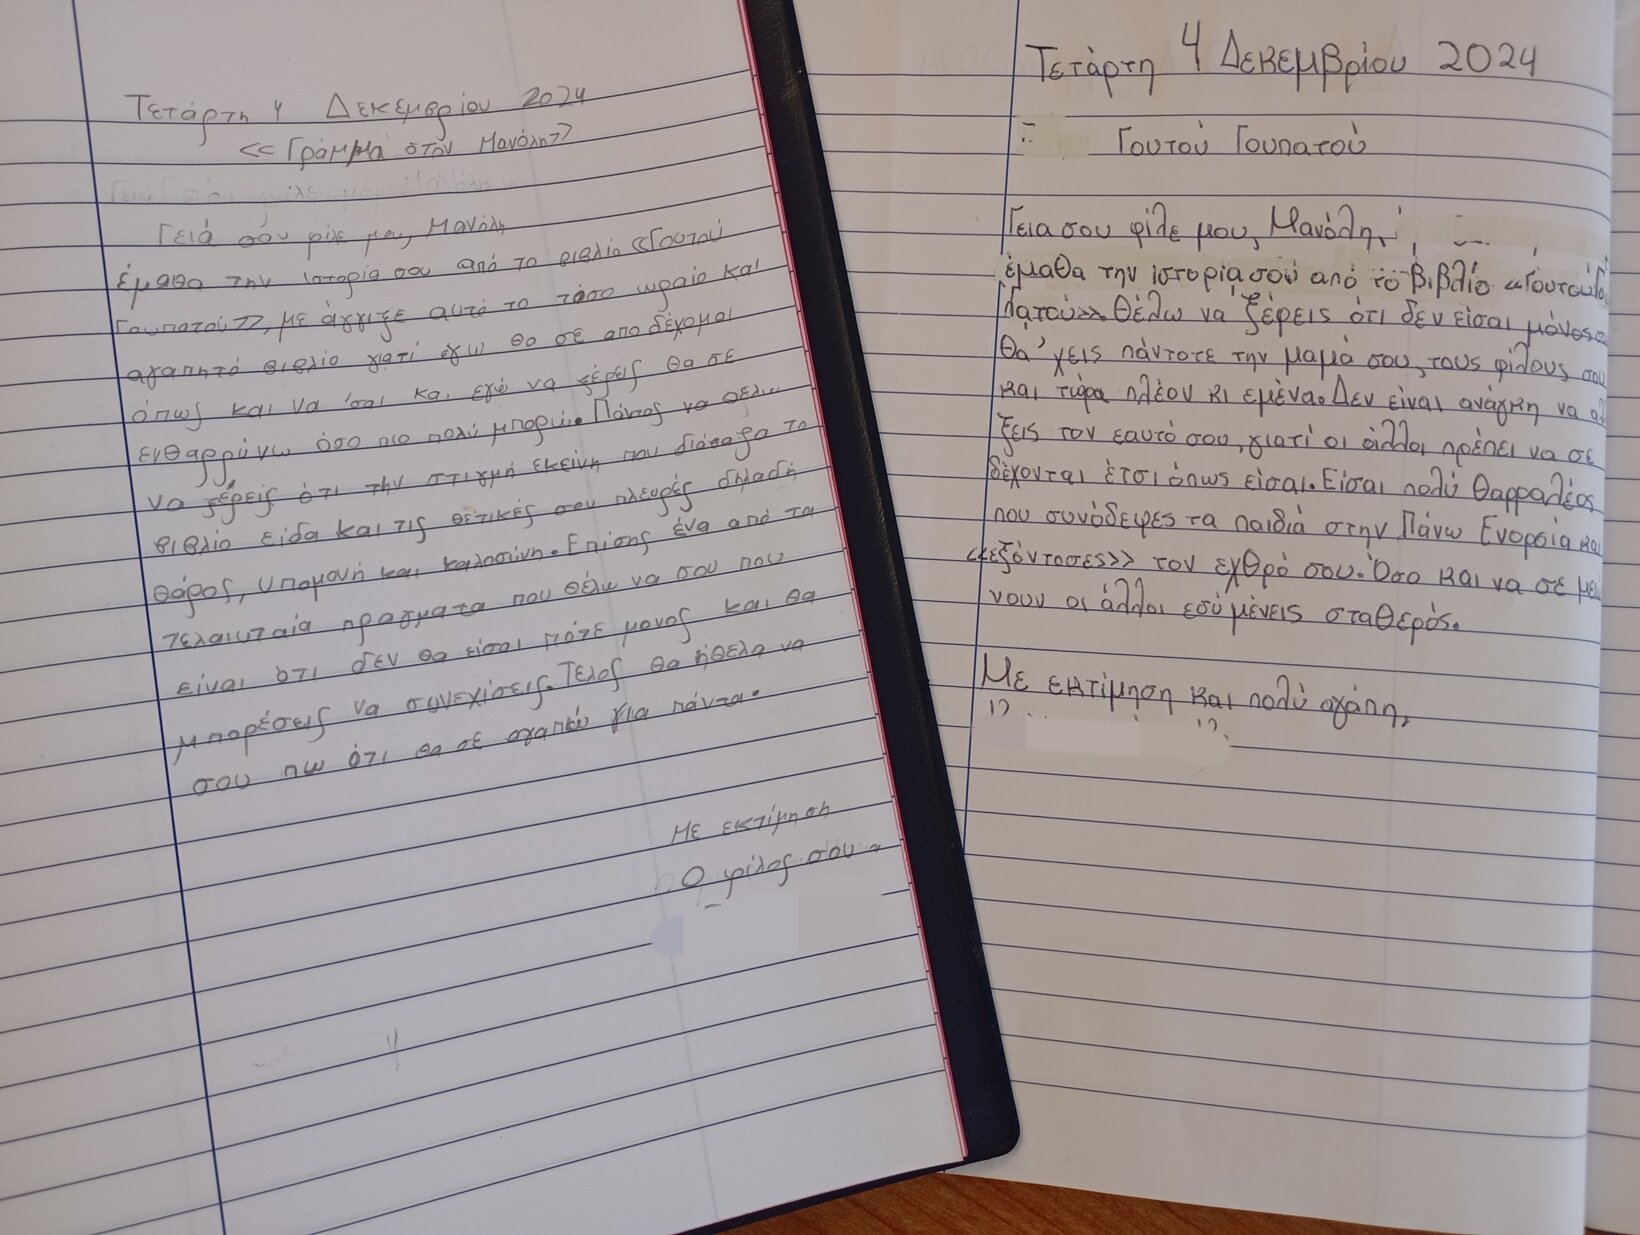 Τετάρτη 4 Δεκεμβρίου 2024
<<Γράμμα στον Μανόλη>>
Γειά σου φίλε μου, Μανόλη
έμαθα την ιστορία σου από το βιβλίο <<Γουτού
Γουπατού>>, με άγγιξε αυτό το τόσο ωραίο και
αγαπητό βιβλίο γιατί εγω θα σε αποδέχομαι
όπως και να 'σαι και εγώ να ξέρεις θα σε
ενθαρρύνω όσο πιο πολύ μπορώ. Πάντος να
να ξέρεις ότι την στιγμή εκείνη που διάβαζα το
βιβλίο είδα και τις θετικές σου πλευρές δηλαδή
θάρος, υπομονή και καλοσύνη. Επίσης ένα από τα
τελαιυταία πραγματα που θέλω να σου που
είναι ότι δεν θα είσαι πότε μονος και θα
μπορέσεις να συνεχίσεις. Τελος θα ήθελα να
σου πω ότι θα σε αγαπώ για πάντα.
Με εκτίμηση
Ο φίλος σου
Τετάρτη 4 Δεκεμβρίου 2024
Γουτού Γουπατού
Γεια σου φίλε μου, Μανόλη,
έμαθα την ιστορία σου από το βιβλίο «Γουτού Γου
πατού». Θέλω να ξέρεις ότι δεν είσαι μόνος σου
Θα 'χεις πάντοτε την μαμά σου, τους φίλους σου
και τώρα πλέον κι εμένα. Δεν είναι ανάγκη να αλ
ξεις τον εαυτό σου, γιατί οι άλλοι πρέπει να σε
δέχονται έτσι όπως είσαι. Είσαι πολύ θαρραλέος
που συνόδεψες τα παιδιά στην Πάνω Ενορσία και
<<εξόντοσες>> τον εχθρό σου. Όσο και να σε μει
νουν οι άλλοι εσύ μένεις σταθερός.
Με εκτίμηση και πολύ αγάπη,